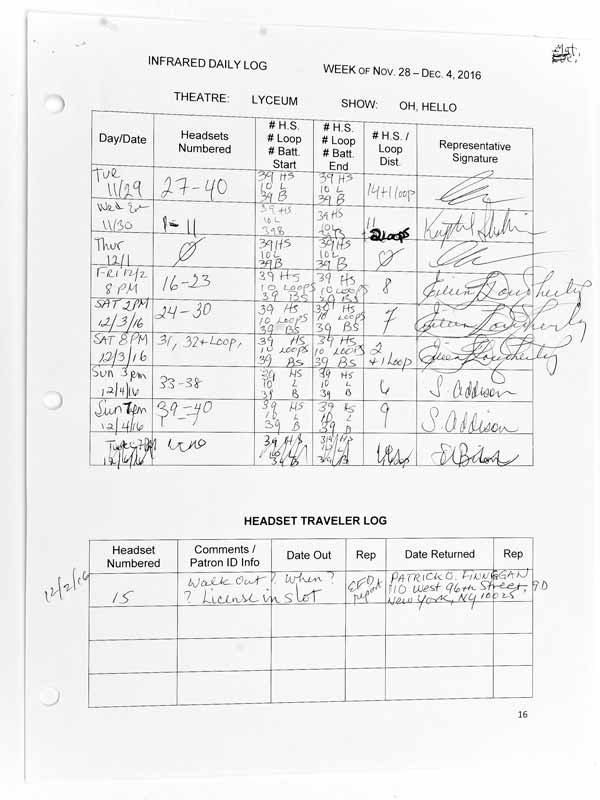 INFRARED DAILY LOG WEEK OF NOV. 28 – DEC. 4, 2016
THEATRE: LYCEUM SHOW: OH, HELLO
Day/Date
Headsets
Numbered
# H.S.
# Loop
# Batt.
Start
# H.S.
# Loop
# Batt.
End
# H.S. /
Loop
Dist.
Representative
Signature
Tue
11/29
27-40
39 HS
10 L
39 B
39 HS
10 L
39 B
14+1 loop
Wed
11/30
1-11
39 HS
10L
39B
39 HS
10L
11
2 Loops
Thur
12/1
Ø
39HS
10L
39B
39HS
10L
39B
Ø
FRI 12/2
8 PM
16-23
39 HS
10 LOOPS
39 BS
39 HS
10 LOOPS
39 BS
8
Eileen Dougherty
SAT 2PM
12/3/16
24-30
39 HS
10 LOOPS
39 BS
39 HS
10 LOOPS
39 BS
7
Eileen Dougherty
SAT 8PM
12/3/16
31, 32+Loop,
39 HS
10 LOOPS
39 BS
39 HS
10 LOOPS
39 BS
2
+1 Loop
Eileen Dougherty
Sun 3pm
12/4/16
33-38
39 HS
10 L
39 B
39 HS
10 L
39 B
6
S. Addison
Sun 7pm
12/4/16
39-40
1-7
39 HS
10 L
39 B
39 HS
10 L
39 B
9
S. Addison
39 HS
39 B
39 HS
39 B
HEADSET TRAVELER LOG
Headset
Numbered
Comments /
Patron ID Info
Date Out
Rep
Date Returned
Rep
12/2/16
15
Walk Out? When?
? License in slot
EFD
report
PATRICK O. FINNEGAN
110 West 96th Street, 9D
New York, NY 10025
16